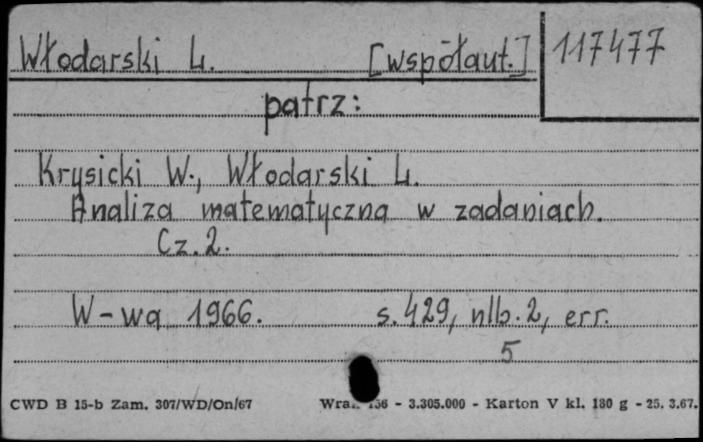 Włodarski Ł. [współaut.] 117477
patrz:
Krysicki W., Włodarski Ł.
Analiza matematyczna w zadaniach.
Cz. 2.
W-wa 1966. s. 429, nlb. 2, err.
5
CWD B 15-b Zam. 307/WD/On/67 - 3.305.000 - Karton V kl. 180 g - 25. 3.67.